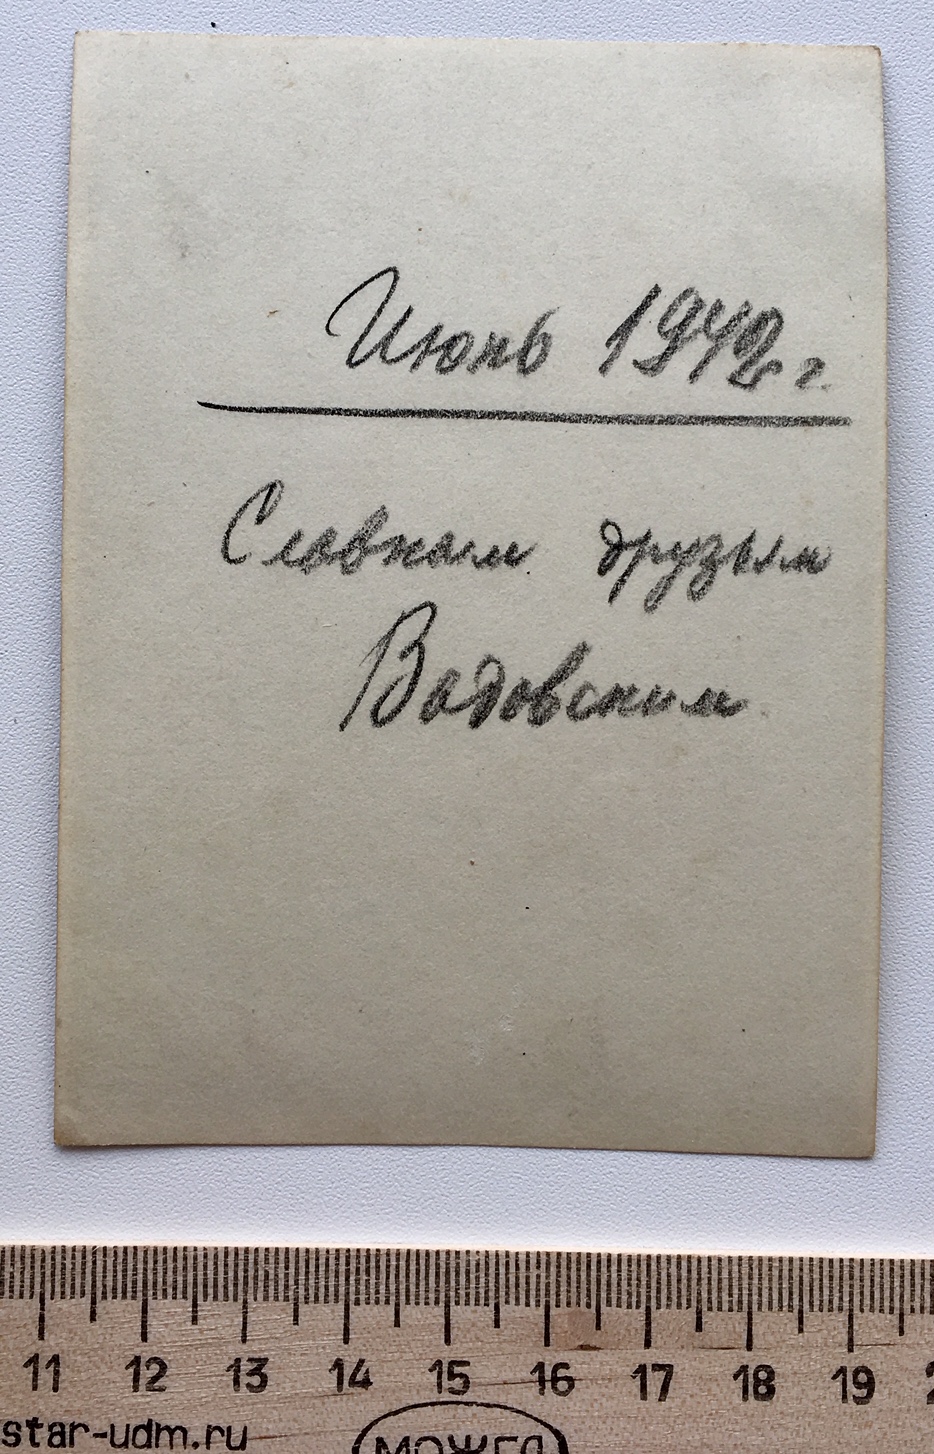 Июнь 1942 г.
Славным друзьям
Вадовским
11 12 13 14 15 16 17 18 19 2
star-udm.ru
МОЖГА